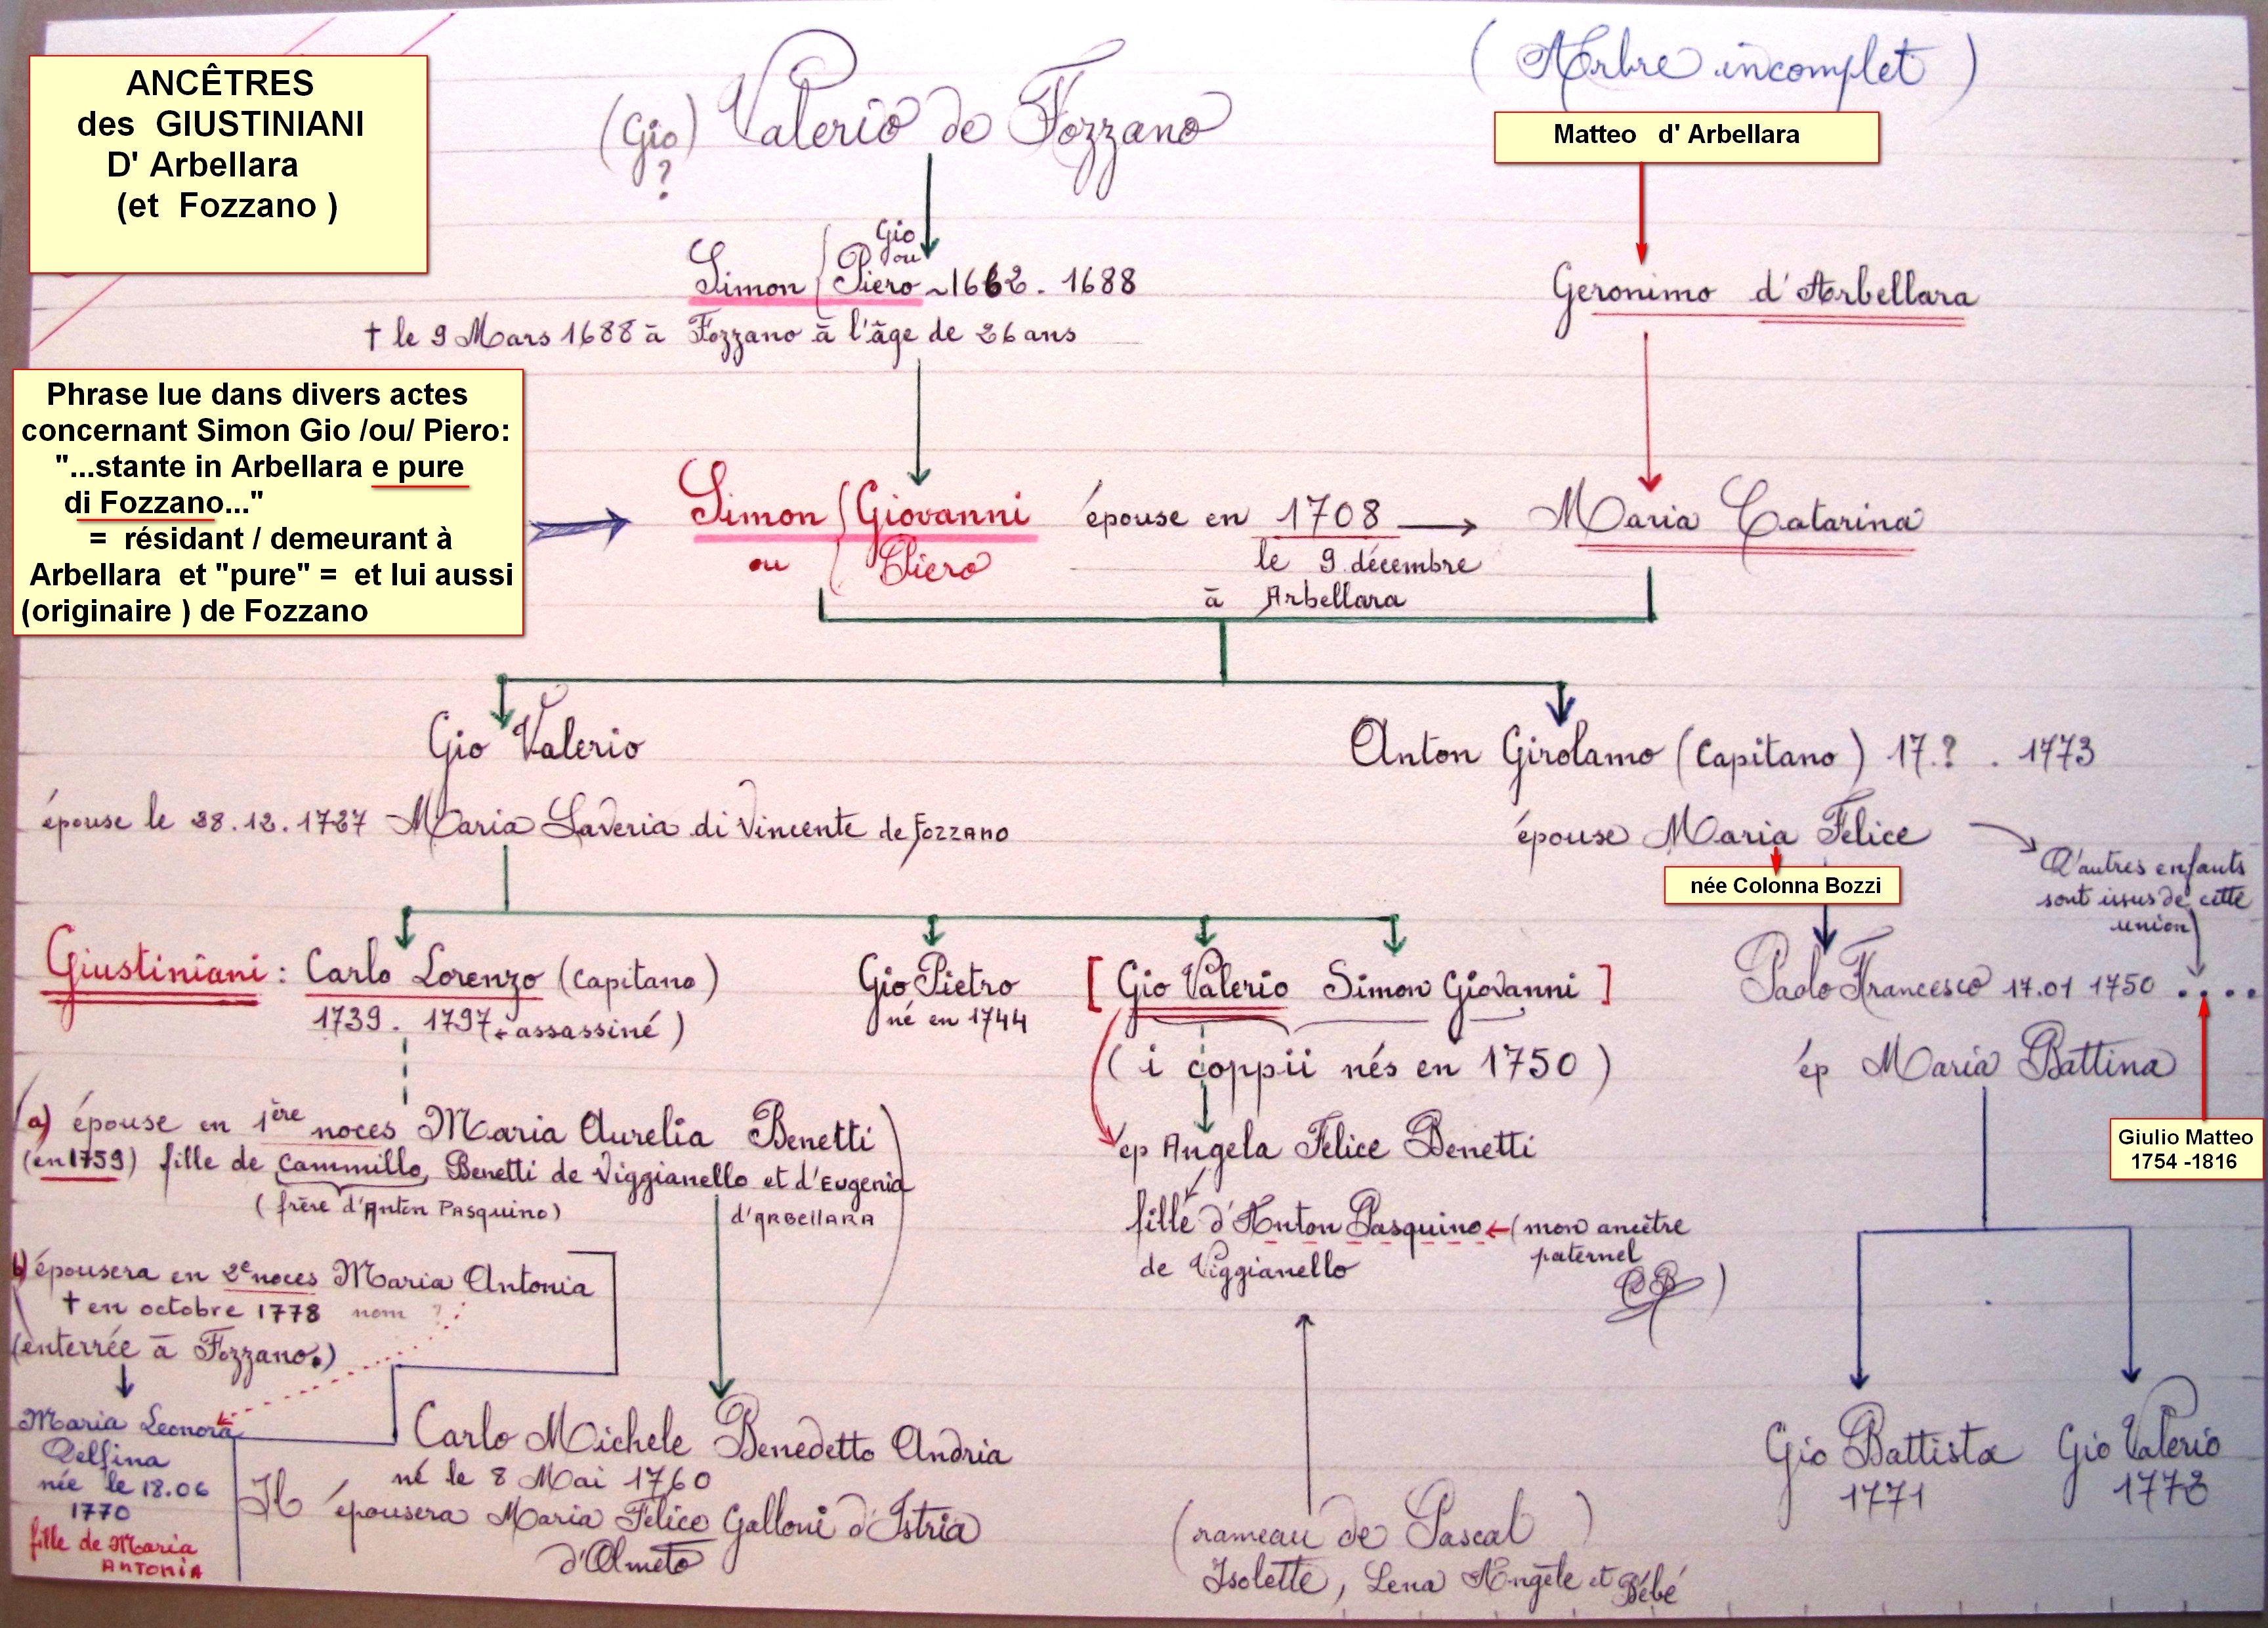 ANCÊTRES
des GIUSTINIANI
D' Arbellara
(et Fozzano )
(Gio) Valerio de Fozzano
?
(Arbre incomplet)
Matteo d' Arbellara
Gio
ou
Simon Piero ~1662 . 1688
† le 9 Mars 1688 à Fozzano à l'âge de 26 ans
Geronimo d'Arbellara
Phrase lue dans divers actes
concernant Simon Gio /ou/ Piero:
"...stante in Arbellara e pure
di Fozzano..."
= résidant / demeurant à
Arbellara et "pure" = et lui aussi
(originaire ) de Fozzano
Simon Giovanni épouse en 1708 Maria Catarina
ou Piero le 9 décembre
à Arbellara
Gio Valerio
épouse le 28.12.1727 Maria Saveria di Vincente de Fozzano
Anton Girolamo (Capitano) 17.? . 1773
épouse Maria Felice
née Colonna Bozzi
D'autres enfants
sont issus de cette
union
Giustiniani : Carlo Lorenzo (capitano)
1739 . 1797 assassiné)
Gio Pietro
né en 1744
[Gio Valerio Simon Giovanni]
(i coppii nés en 1750)
Paolo Francesco 17.01 1750 ....
ép Maria Battina
Giulio Matteo
1754 -1816
a) épouse en 1ère noces Maria Aurelia Benetti
(en 1759) fille de Cammillo, Benetti de Viggianello et d'Eugenia
(frère d'Anton Pasquino) d'ARBELLARA
ep Angela Felice Benetti
fille d'Anton Pasquino (mon ancêtre
de Viggianello paternel
)
b) épousera en 2e noces Maria Antonia
† en octobre 1778 nom ?
(enterrée à Fozzano.)
Maria Leonora
Delfina
née le 18.06
1770
fille de Maria
ANTONIA
Carlo Michele Benedetto Andria
né le 8 Mai 1760
Il épousera Maria Felice Galloni d'Istria
d'Olmeto
(rameau de Pascal)
Isolette, Lena Angèle et Bébé
Gio Battista
1771
Gio Valerio
1773